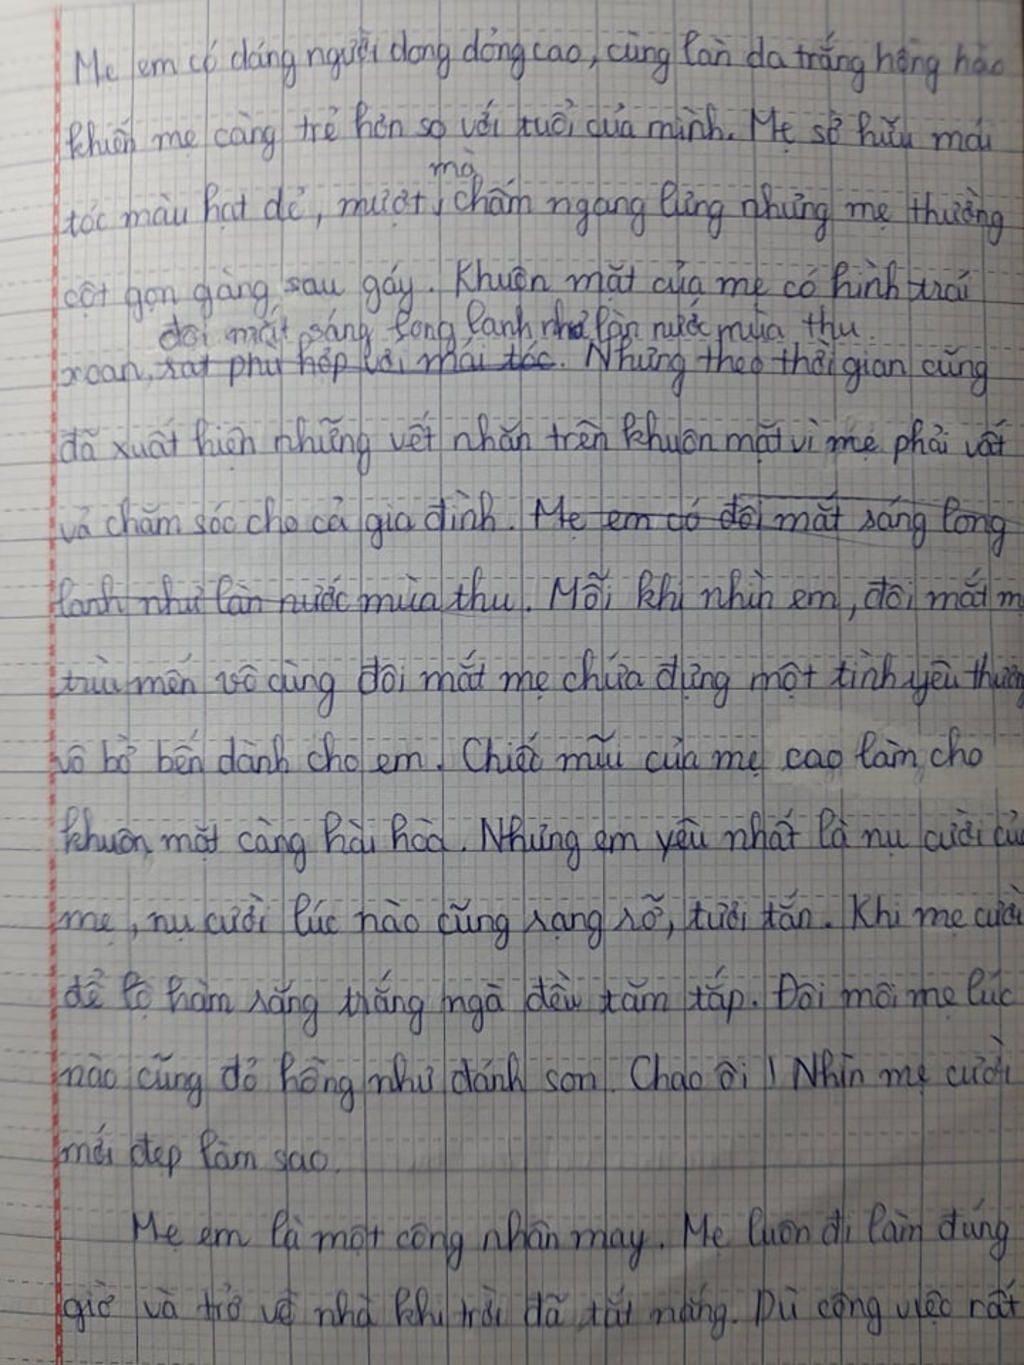 Mẹ em có dáng người dong dỏng cao, cùng làn da trắng hồng hào
khiến mẹ càng trẻ hơn so với tuổi của mình. Mẹ sở hữu mái
mà
tóc màu hạt dẻ, mượt, chấm ngang lưng nhưng mẹ thường
cột gọn gàng sau gáy. Khuôn mặt của mẹ có hình trái
đôi mắt sáng long lanh như làn nước mùa thu.
xoan, rất phù hợp với mái tóc. Nhưng theo thời gian cũng
đã xuất hiện những vết nhăn trên khuôn mặt vì mẹ phải vất
vả chăm sóc cho cả gia đình. Mẹ em có đôi mắt sáng long
lanh như làn nước mùa thu. Mỗi khi nhìn em, đôi mắt m
trìu mến vô cùng đôi mắt mẹ chứa đựng một tình yêu thương
vô bờ bến dành cho em. Chiếc mũi của mẹ cao làm cho
khuôn mặt càng hài hòa. Nhưng em yêu nhất là nụ cười củ
mẹ, nụ cười lúc nào cũng rạng rỡ, tươi tắn. Khi mẹ cười
để lộ hàm răng trắng ngà đều tăm tắp. Đôi môi mẹ lúc
nào cũng đỏ hồng như đánh son. Chao ôi! Nhìn mẹ cười
mới đẹp làm sao.
Mẹ em là một công nhân may. Mẹ luôn đi làm đúng
giờ và trở về nhà khi trời đã tắt nắng. Dù công việc rất